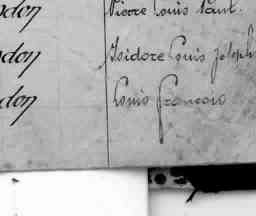 don Pierre Louis Paul.
don Isidore Louis Joseph
don Louis François